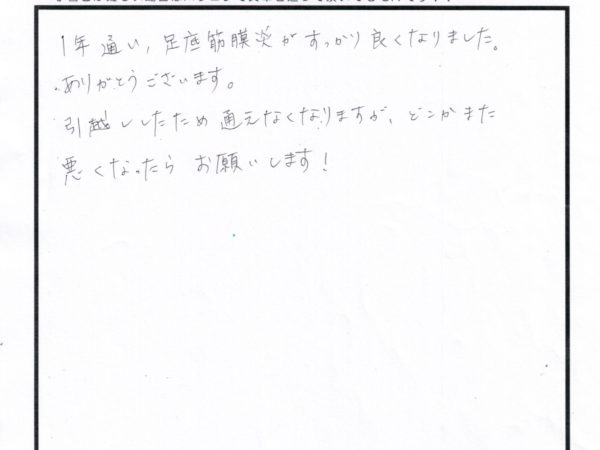 1年通い、足底筋膜炎がすっかり良くなりました。
ありがとうございます。
引越ししたため通えなくなりますが、どこかまた
悪くなったらお願いします！